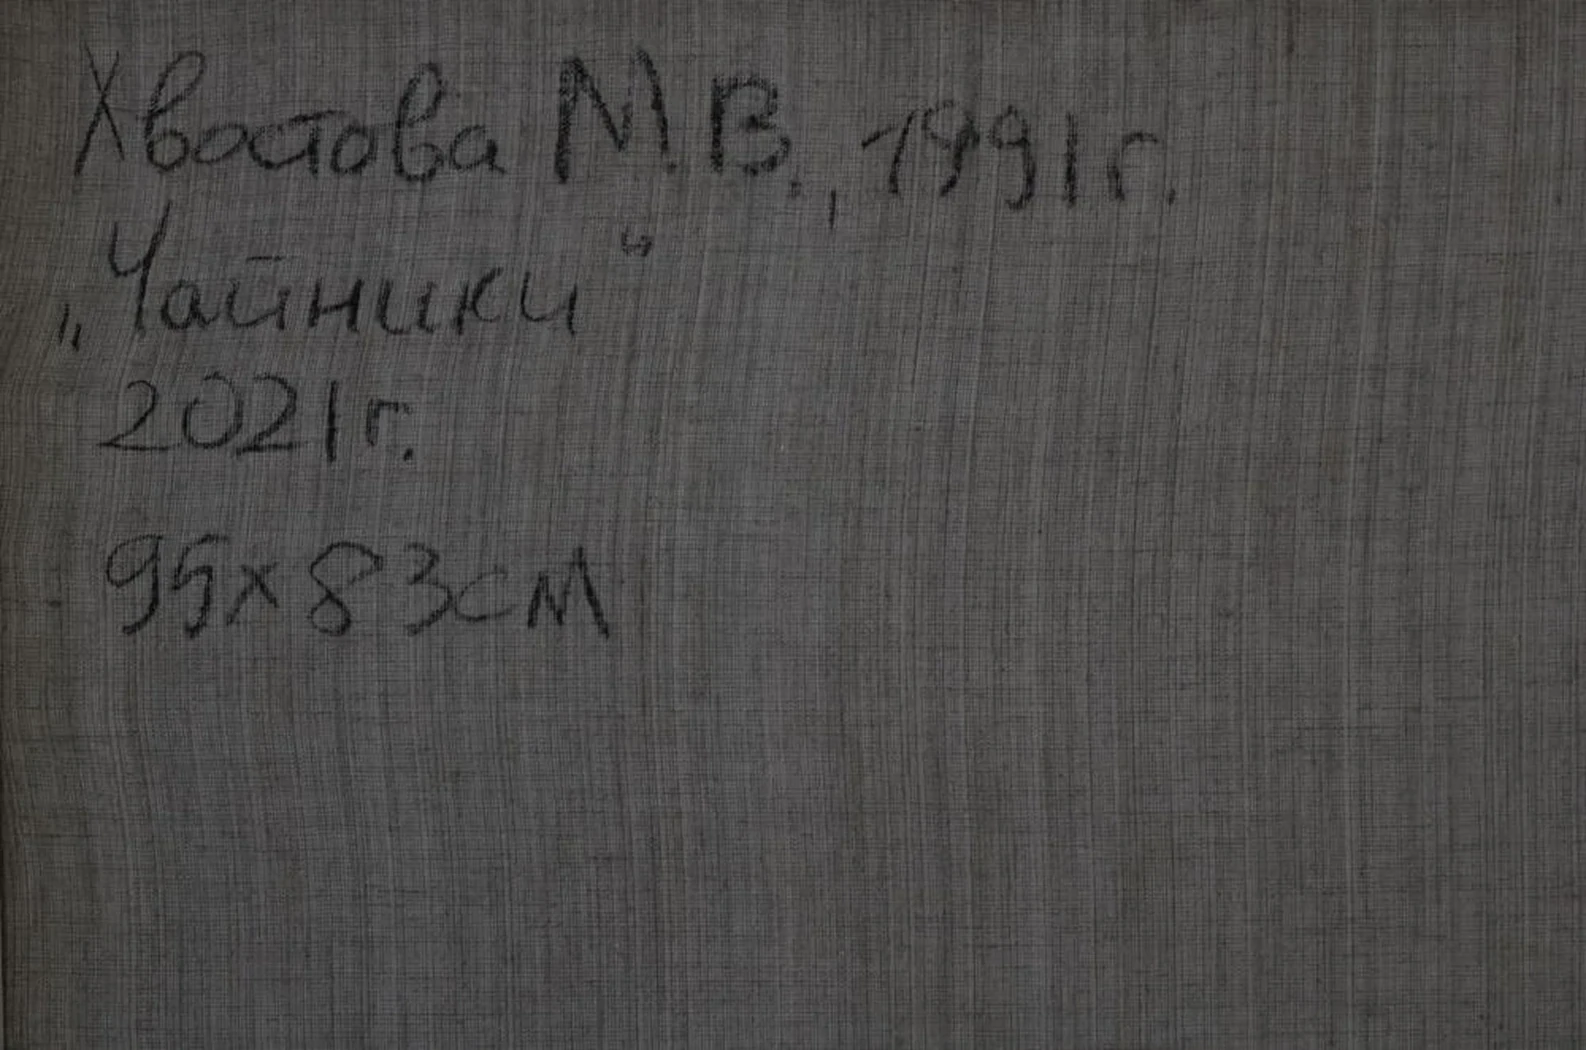 Хвостова М.В., 1991г.
„Чайники“
2021г.
95x83см